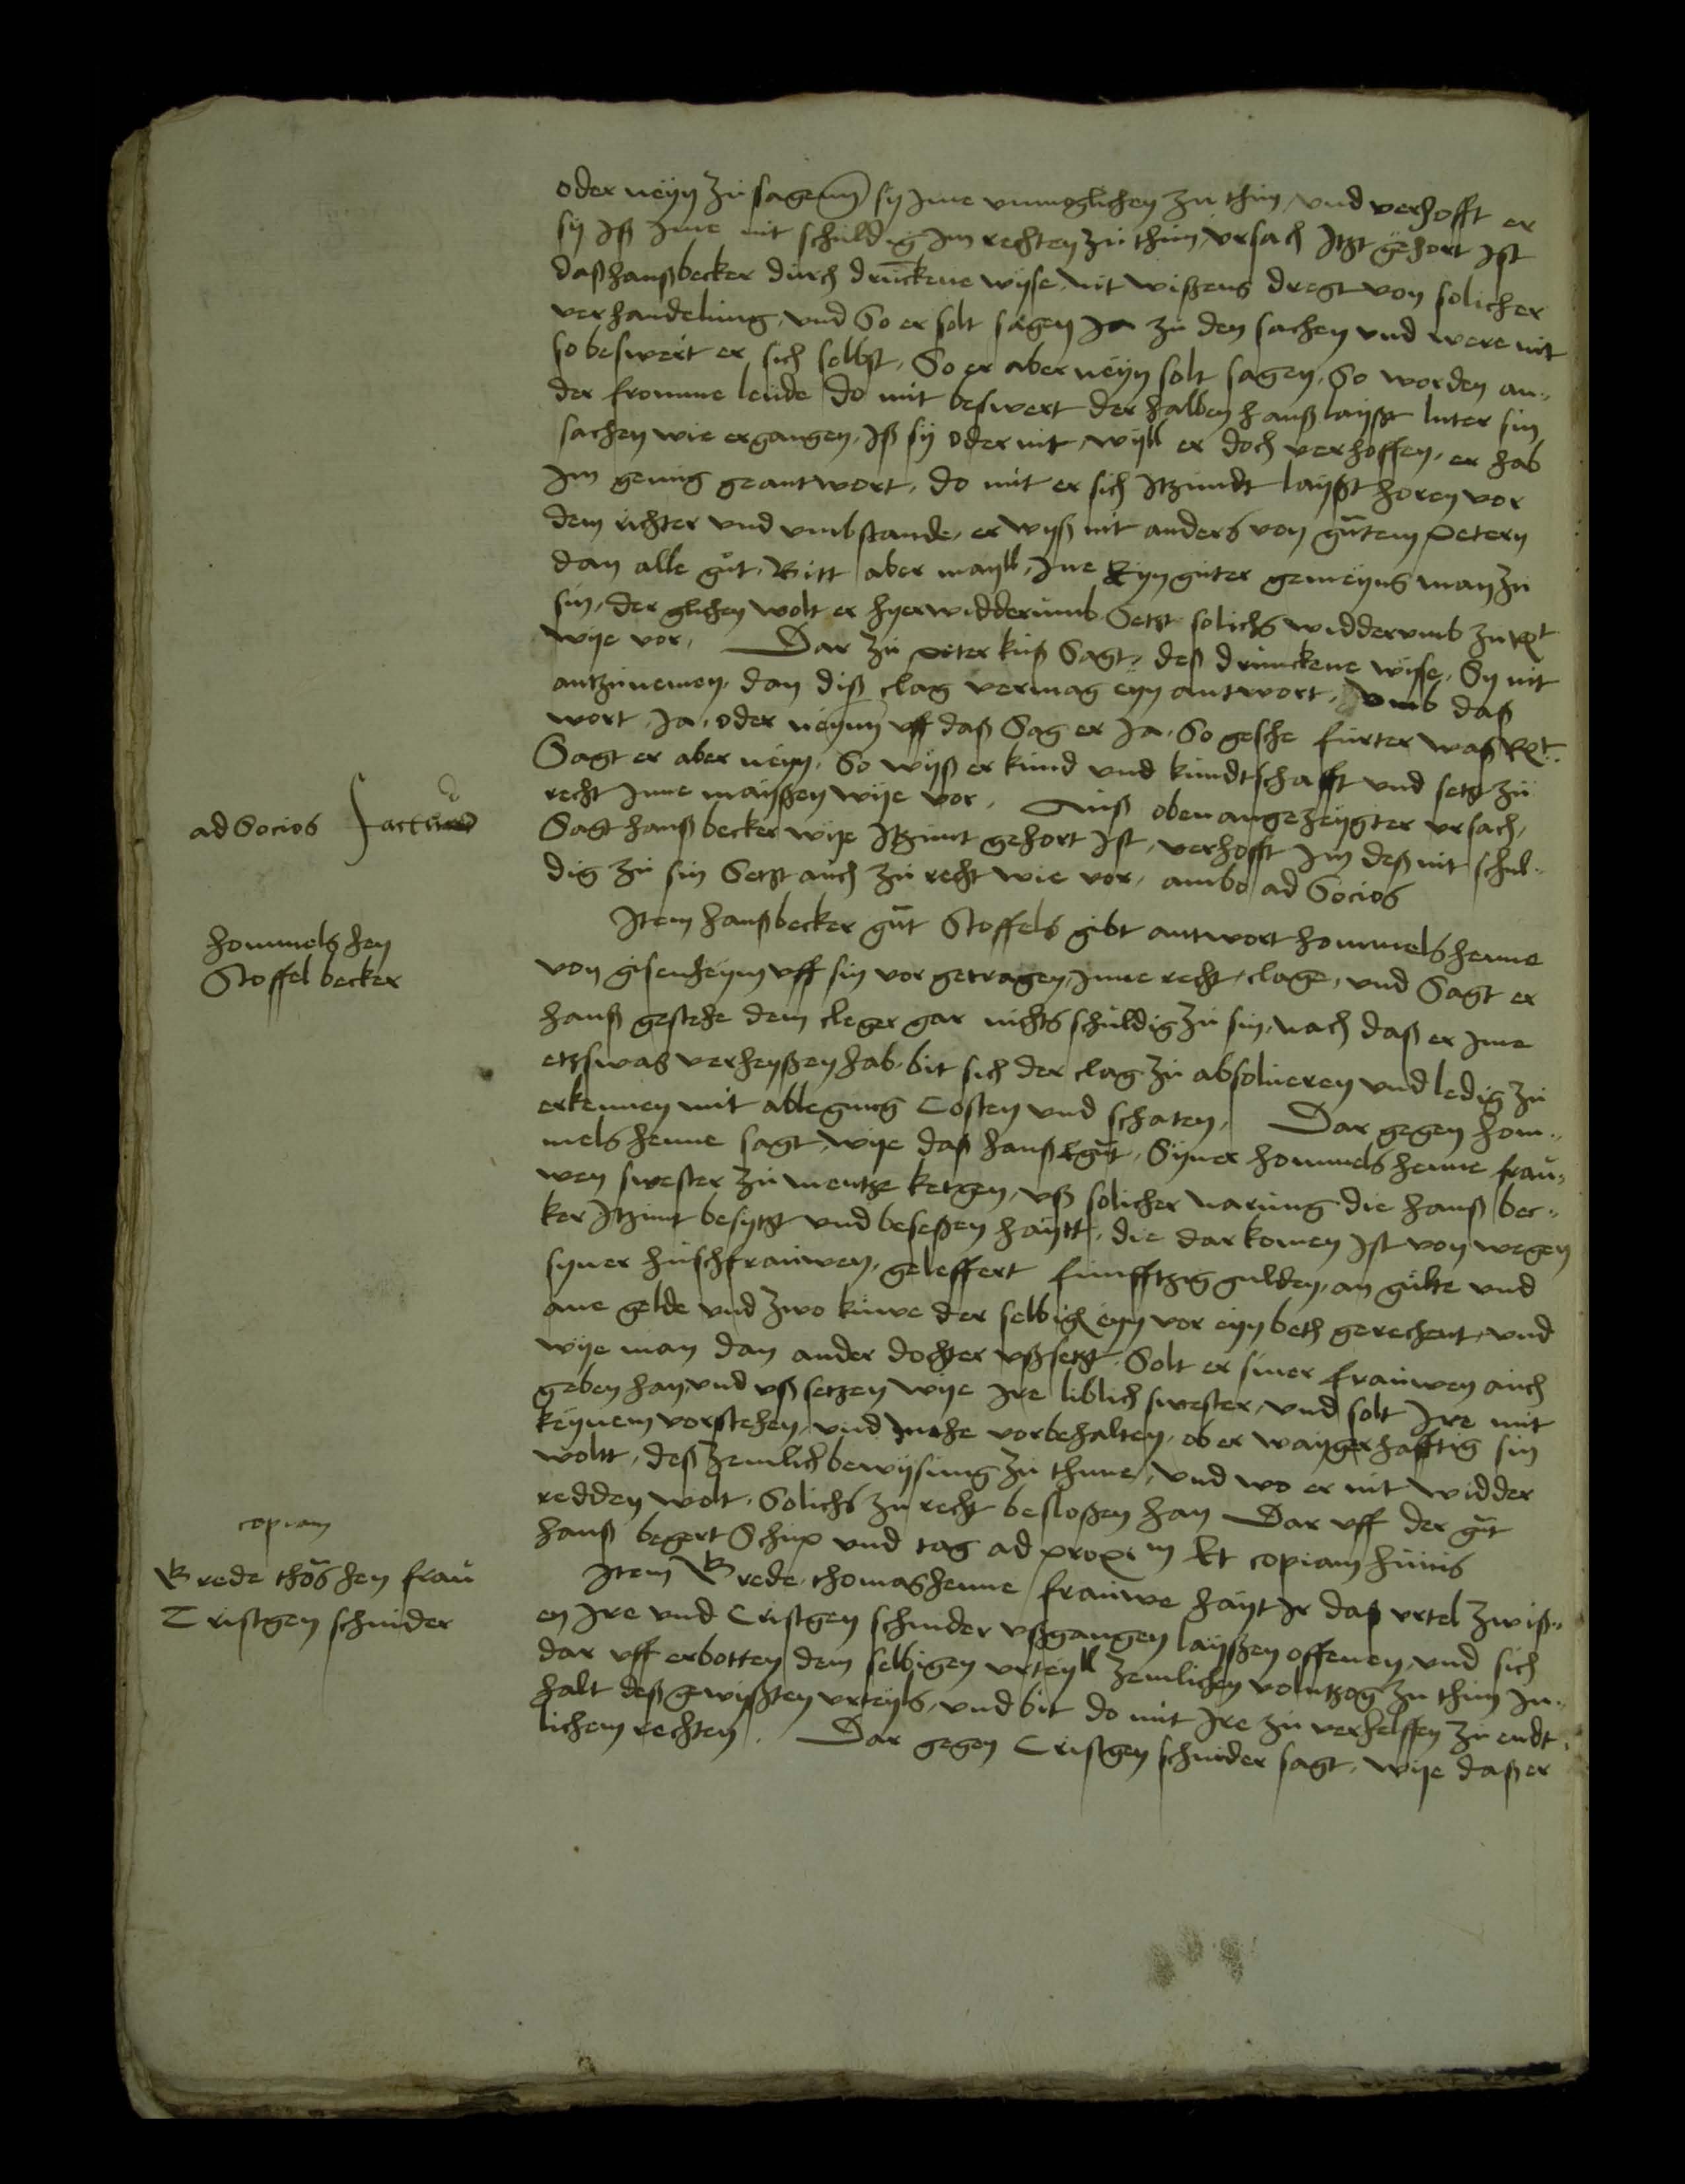 oder neyn zu sagenn sy Ime unmoglichen zu thun, und verhofft er
sy Iß Ime nit schuldig Im rechten zu thun, ursach Itzt gehort Ist
daß hanß becker durch drückene wyse, nit wißens dregt von solicher
verhandelung, und So er solt sagen Ja zu den sachen und were nit
so beswert er sich selbst, So er aber neyn solt sagen, So worden an-
der fromme leude do mit beswert der halben hanß layßt luter sin
sachen wie ergangen, Iß sy oder nit, wyll er doch verhoffen, er hab
Im genug geantwort, do mit er sich Itzundt layßt horen vor
dem richter und umbstande, er wyß nit anders von gutem Petern
dan alle gut, Bitt aber mayll, Ime Eyn guter gemeyns man zu
sin, der glichen wolt er hyerwidderumb Setzt solichs widderumb zu Rt
wye vor, Dar zu peter kuß Sagt, deß drunckene wyse, Sy nit
antzunemen, dan diß clag vermag eyn antwort, umb daß
wort, Ja, oder neynn uff daß Sag er Ja, So gesche furter waß Rt
Sagt er aber neyn, So wyß er kund und kundtschafft und setz zu
recht Inne mayßen wye vor, Auß oben angezeygter ursach,
Sagt hanß becker wye Itzunt gehort Ist, verhofft Im deß nit schul-
dig zu sin Setzt auch zu recht wie vor, ambo ad Socios
ad Socios actum
Item hanß becker gnt Stoffels gibt antwort hommels henne
von gisenheym uff sin vor getragen, Inne recht, clage, und Sagt er
hanß gestehe dem cleger gar nichts schuldig zu sin, nach daß er Ime
etzswas verheyßen hab, bit sich der clag zu absolueren und ledig zu
erkennen mit ablegung Costen und schaten, Dar gegen hom-
mels henne sagt, wye daß hanß gnt, Syner hommels henne frau-
wen swester zu mentze ketgen, uß solicher narung die hanß bec-
ker Itzunt besytzt und beseßen haytt, die dar komen Ist von wegen
syner hußfrauwen, geleffert funfftzig gulden, an gulte und
ane gelde und zwo kuwe der selbig eyn vor eyn beth gerechent, und
wye man dan ander dochter ußsetzt, Solt er siner frauwen auch
geben han und uß setzen wye Ire liblich swester, und solt Ire mit
keynem vorstehen, und mehe vorbehalten, ob er waygerhafftig sin
woltt, deß zemlich bewysung zu thune, und wo er nit widder
redden wolt, Solichs zu recht besloßen han Dar uff der gnt
hanß begert Schup und tag ad proxim Et copiam huius
hommels hen
Stoffel becker
copiam
Item Brede, thomas henne frauwe hayt Ir daß urtel zwiß-
en Ire und Cristgen schnider ußgangen layßen offenen, und sich
dar uff erbotten dem selbigen urteyll zemlichen volntzog zu thun In-
halt deß gewyßten urteyls, und bit do mit Ire zu verhelffen zu endt-
lichem rechten. Dar gegen Cristgen schnider sagt, wye daß er
Brede thos hen frau
Cristgen schnider